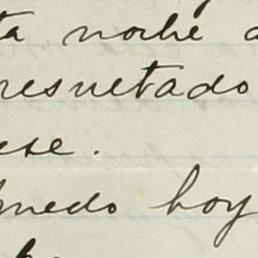 ta noche a
resuetado
ese.
medo hoy